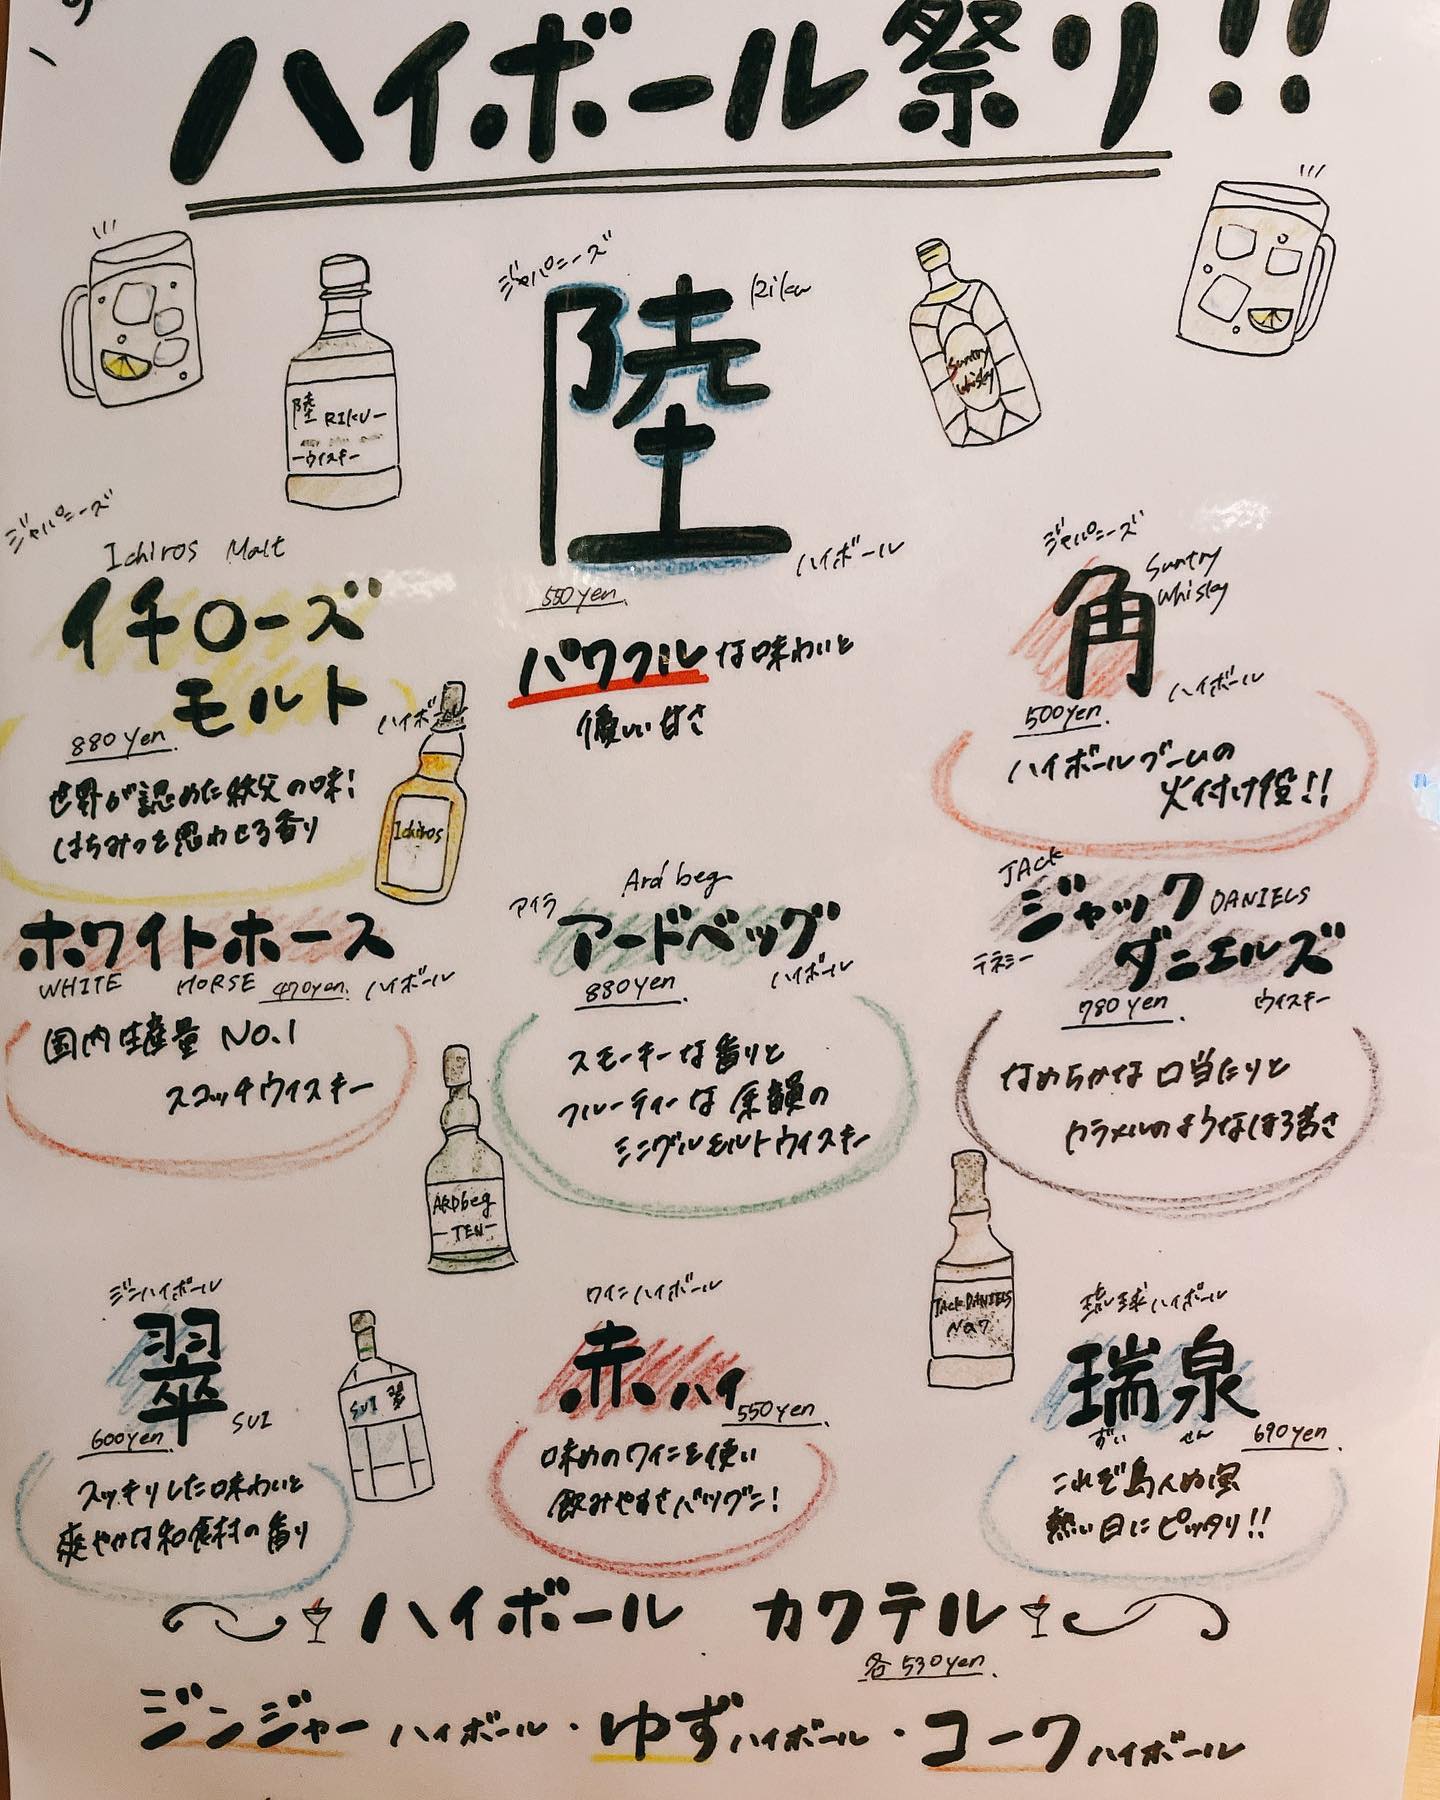 ハイボール祭り!!
ジャパニーズ
Riku
陸
ハイボール
550yen.
パワフルな味わいと
優しい甘さ
陸 RIKU
ーウイスキー
Suntry
Whisky
ジャパニーズ
Ichiros Malt
イチローズ
モルト
ハイボール
880yen.
世界が認めた秩父の味!
はちみつを思わせる香り
Ichiros
ジャパニーズ
角
Suntry
Whisky
ハイボール
500yen.
ハイボールブームの
火付け役!!
ホワイトホース
WHITE HORSE 470yen. ハイボール
国内生産量 NO.1
スコッチウイスキー
Ard beg
アイラ
アードベッグ
880yen. ハイボール
スモーキーな香りと
フルーティーな余韻の
シングルモルトウイスキー
ARDbeg
-TEN-
JAck
ジャック DANIELS
テネシー ダニエルズ
780yen. ウイスキー
なめらかな口当たりと
カラメルのようなほろ苦さ
JAck DANIELS
No7
ジンハイボール
翠
600yen. SUI
スッキリした味わいと
爽やかな和食材の香り
SUI 翠
ワインハイボール
赤ハイ
550yen.
味めのワインを使い
飲みやすさバツグン!
琉球ハイボール
瑞泉
ずい せん
690yen.
これぞ島人ぬ宝
熱い日にピッタリ!!
ハイボール カクテル
各530yen.
ジンジャーハイボール・ゆずハイボール・コークハイボール